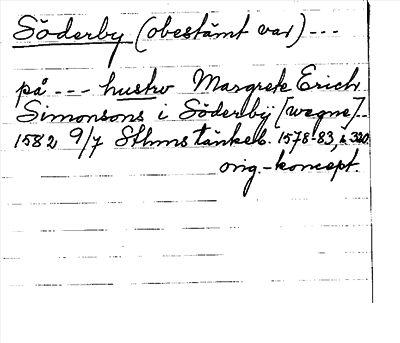 Söderby (obestämt var) ---
på --- hustro Margrete Erich
Simonsons i Söderbÿ [wegne]..
1582 9/7 Sthms tänkeb. 1578-83, s. 320.
orig.-koncept.